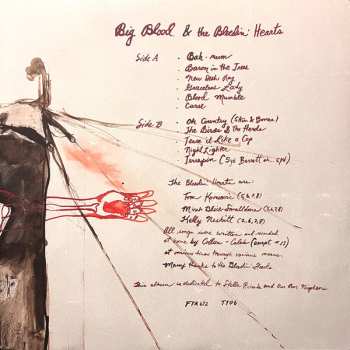 Big Blood & the Bleedin' Hearts
Side A · Bah-num
Baron in the Trees
New Dark Age
Graceless Lady
Blood Mumble
Curse
Side B · Oh Country (Skin & Bones)
The Birds & The Herds
Tear it Like a Cop
Night Lighter
Terrapin (Syd Barrett
The Bleedin Hearts are:
Tom Kovacevic
Micah Blue Smaldone
Kelly Nesbitt
All songs were written and recorded
at home by Colleen + Caleb (except #12)
at various times through various means.
Many thanks to the Bleedin Hearts
This album is dedicated to
FTR